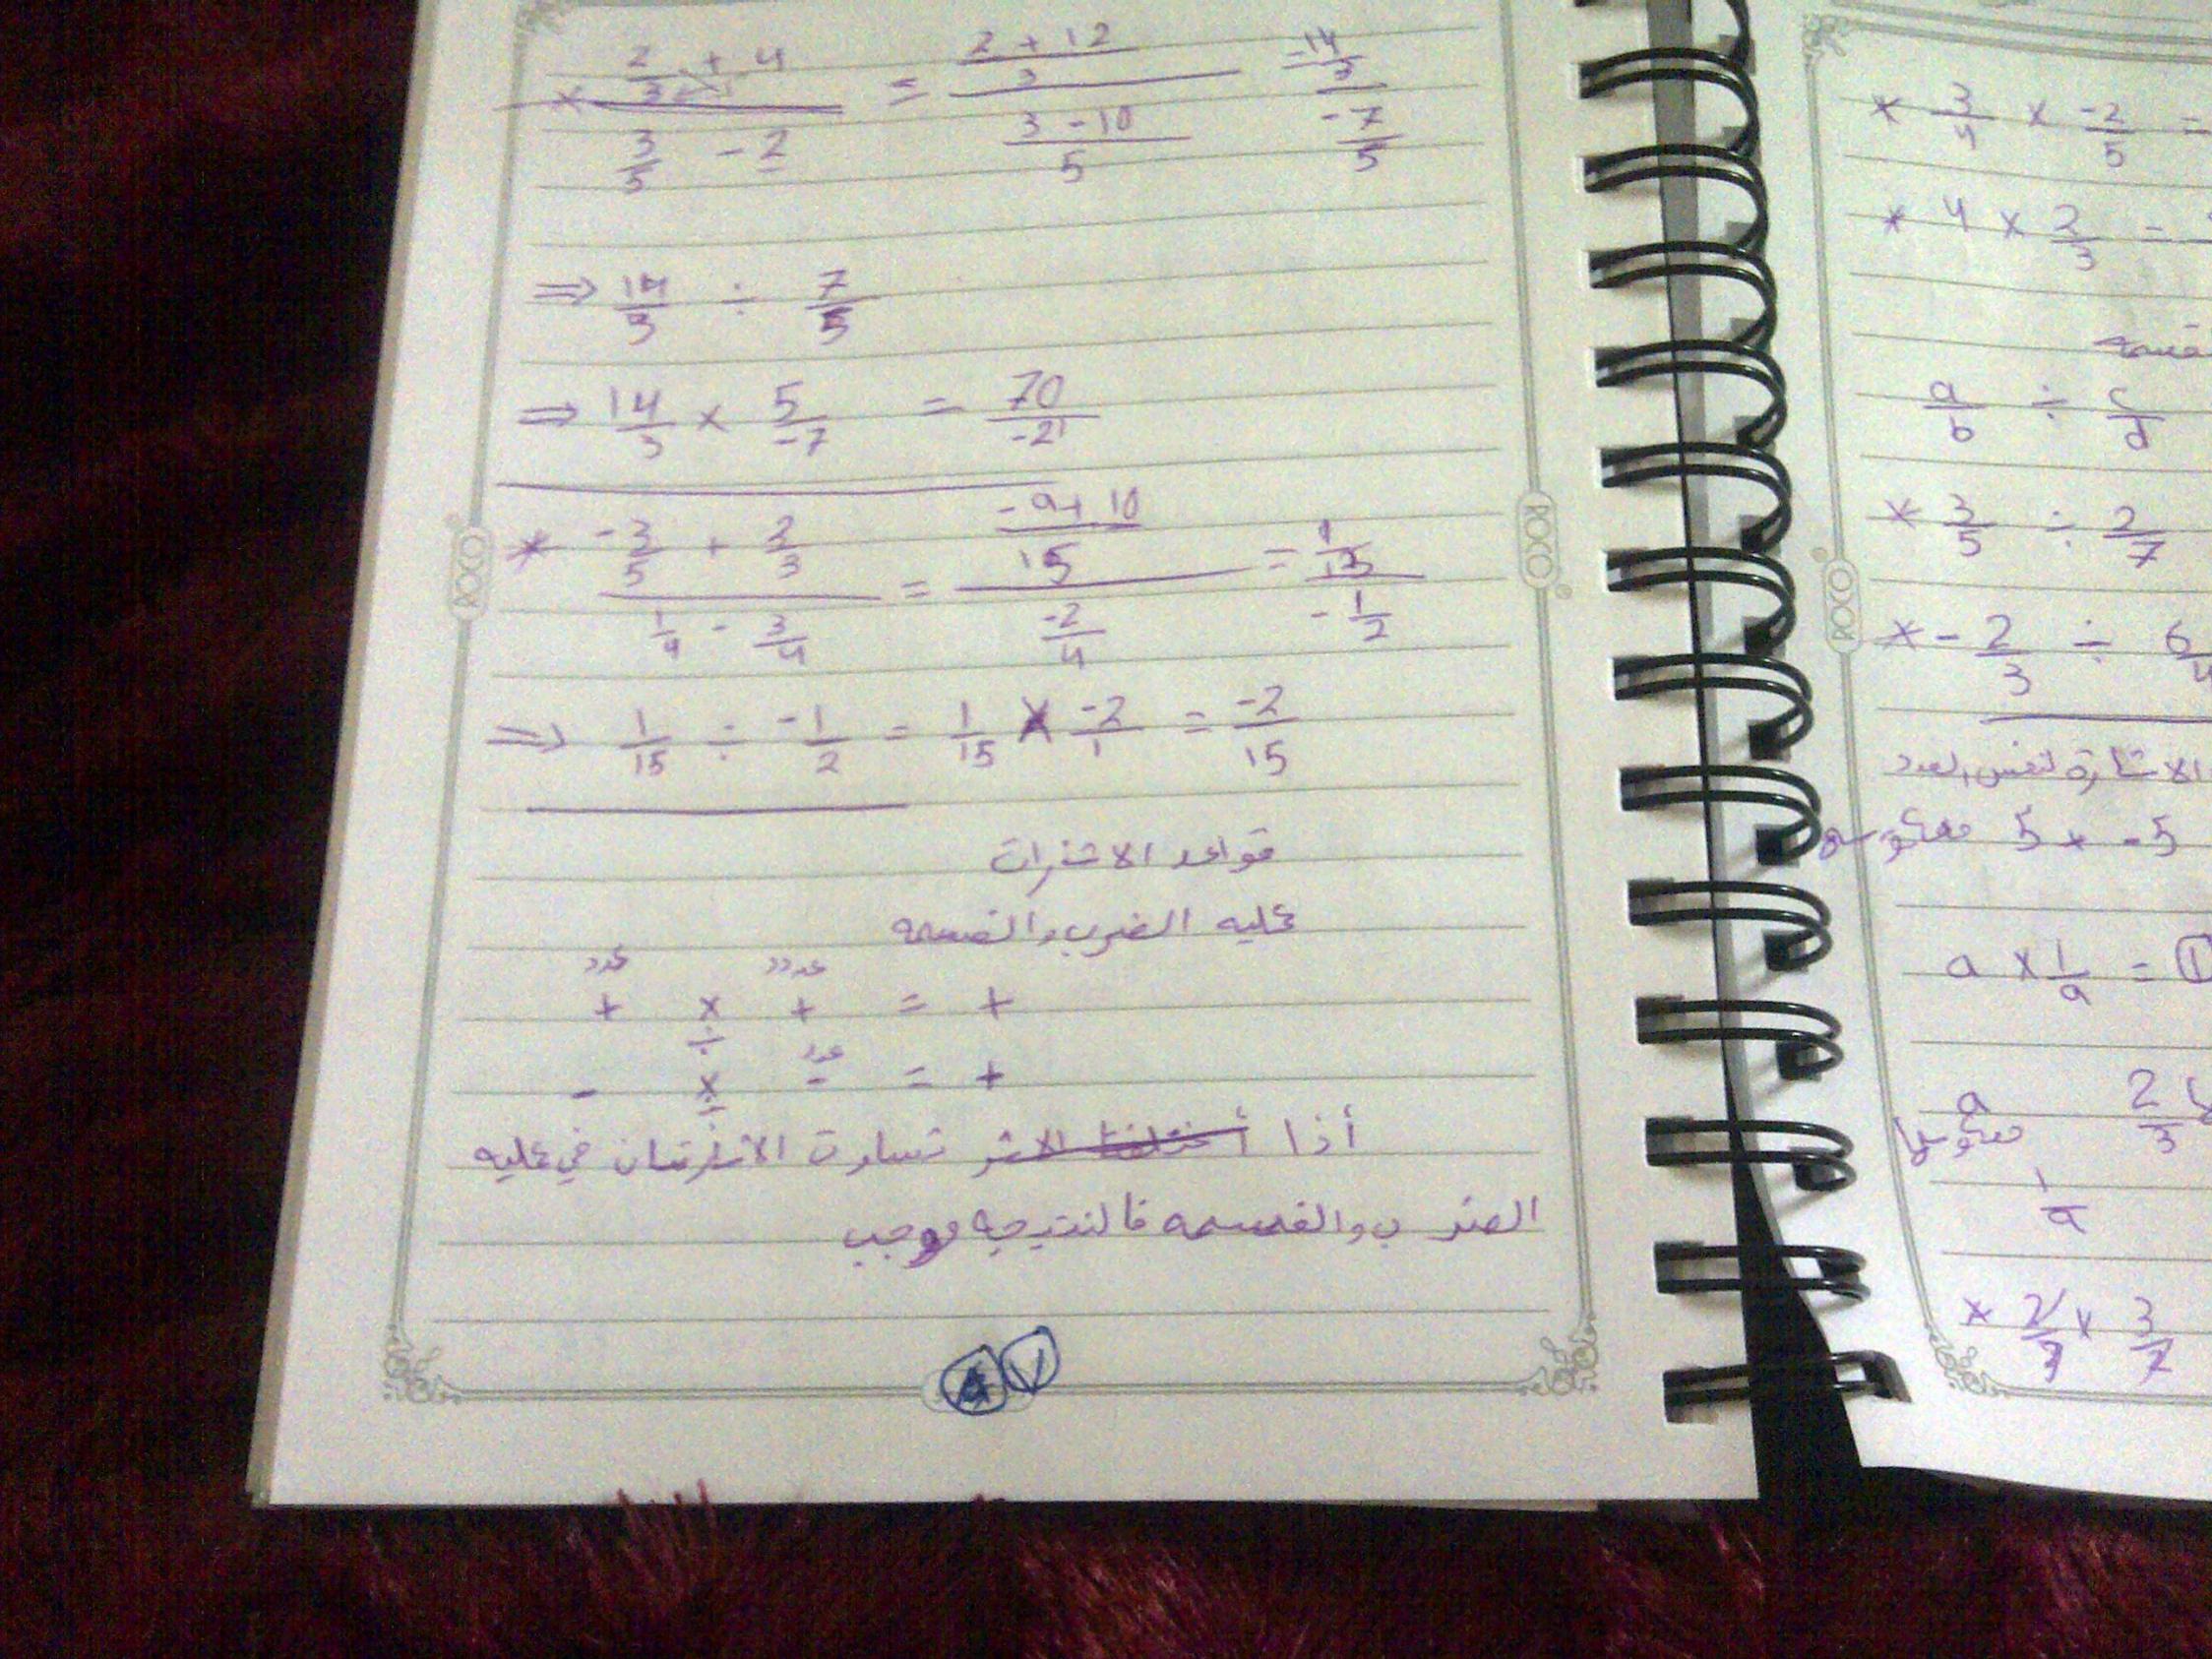 * (2/3 + 4) / (3/5 - 2) = ((2 + 12)/3) / ((3 - 10)/5) = (14/3) / (-7/5)
⇒ 14/3 ÷ 7/5
⇒ 14/3 × 5/-7 = 70/-21
* (-3/5 + 2/3) / (1/4 - 3/4) = ((-9 + 10)/15) / (-2/4) = (1/15) / (-1/2)
⇒ 1/15 ÷ -1/2 = 1/15 × -2/1 = -2/15
قواعد الاشارات
عليه الضرب والقسمه
عدد عدد
+ × + = +
÷ عدد
- × - = +
÷
أذا تساوت الاشارتان في عليه
الضرب والقسمه فالنتيجه موجب
٧
ROCO
ROCO
* 3/4 × -2/5 =
* 4 × 2/3 =
a/b ÷ c/d
* 3/5 ÷ 2/7
* -2/3 ÷ 6/4
الاشارة لنفس العدد
5 × -5
a × 1/a = 1
a 2/3
معكوسها
1/a
* 2/3 × 3/2
ROCO